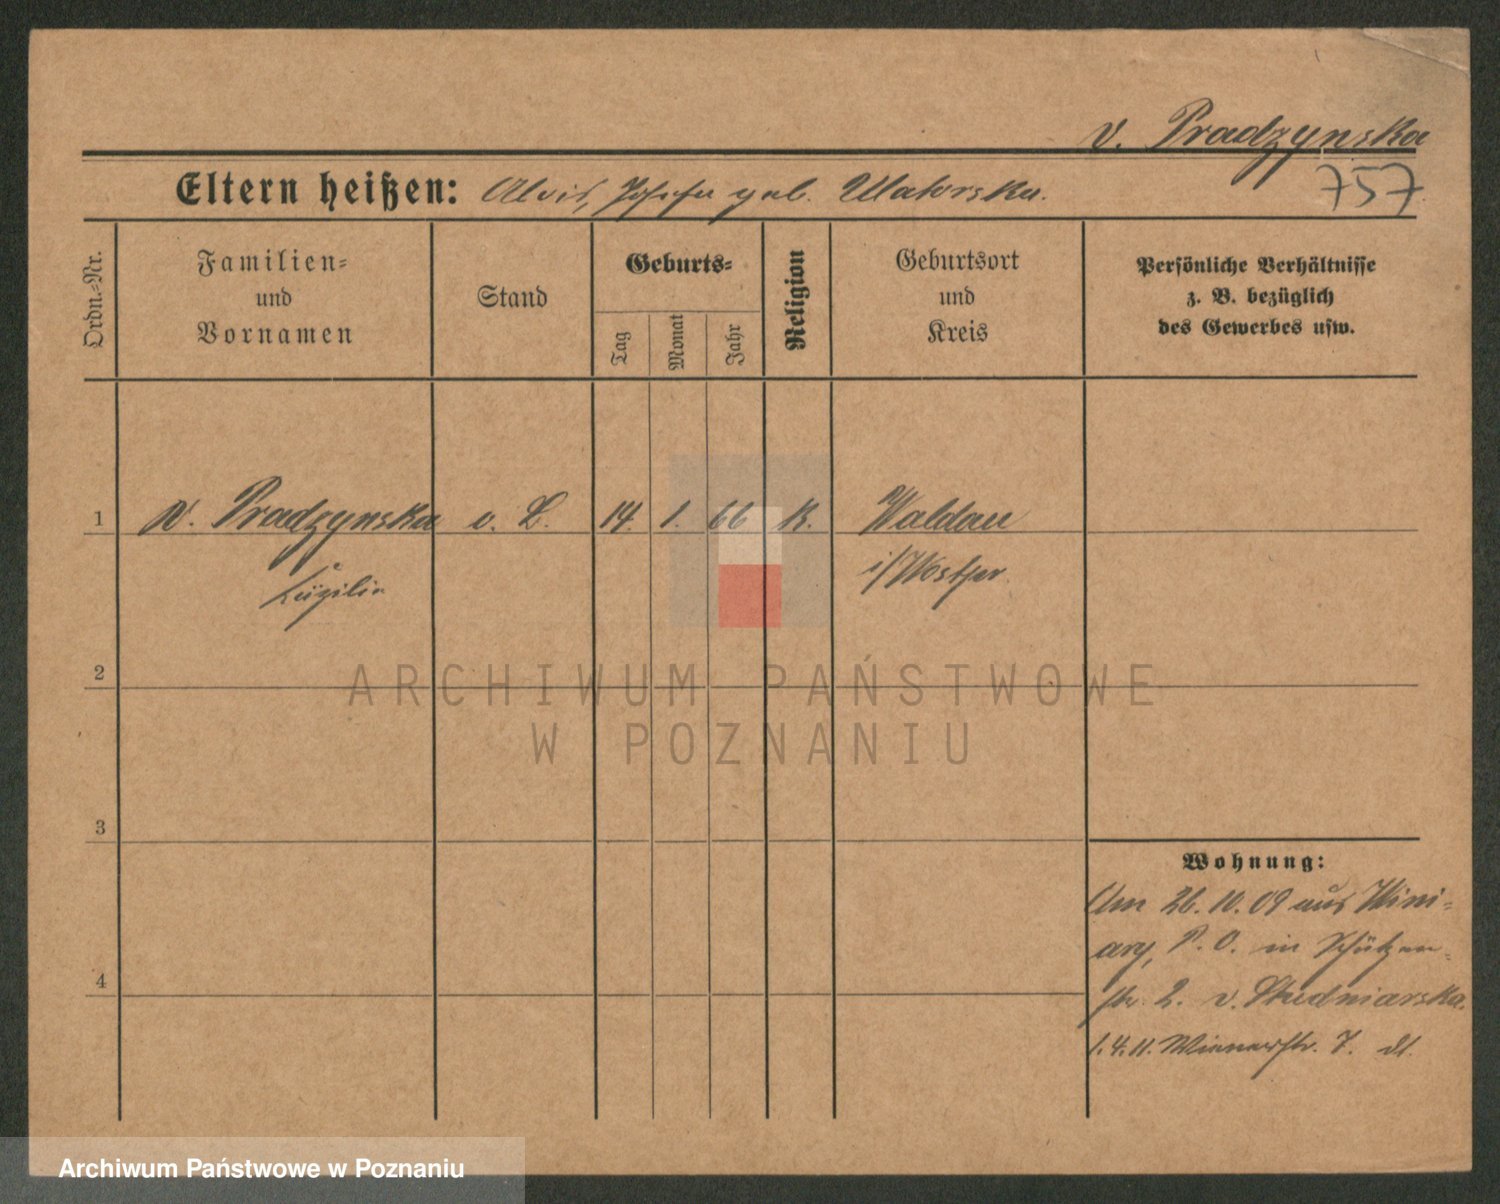 v. Pradzynska
757
Eltern heißen: Alois, Josefa geb. Ulatorska.
Ordn.-Nr.
Familien-
und
Vornamen
Stand
Geburts-
Tag
Monat
Jahr
Religion
Geburtsort
und
Kreis
Persönliche Verhältnisse
z. B. bezüglich
des Gewerbes usw.
1 v. Pradzynska o. L. 14. 1. 66 k. Waldau
i/Westpr.
2
3
4
Wohnung:
Am 26.10.09 aus Wini-
ary, P. O. in Schützen-
str. 2. v. Studniarska.
1.4.11. Wienerstr. 7.
ARCHIWUM PAŃSTWOWE
W POZNANIU
Archiwum Państwowe w Poznaniu